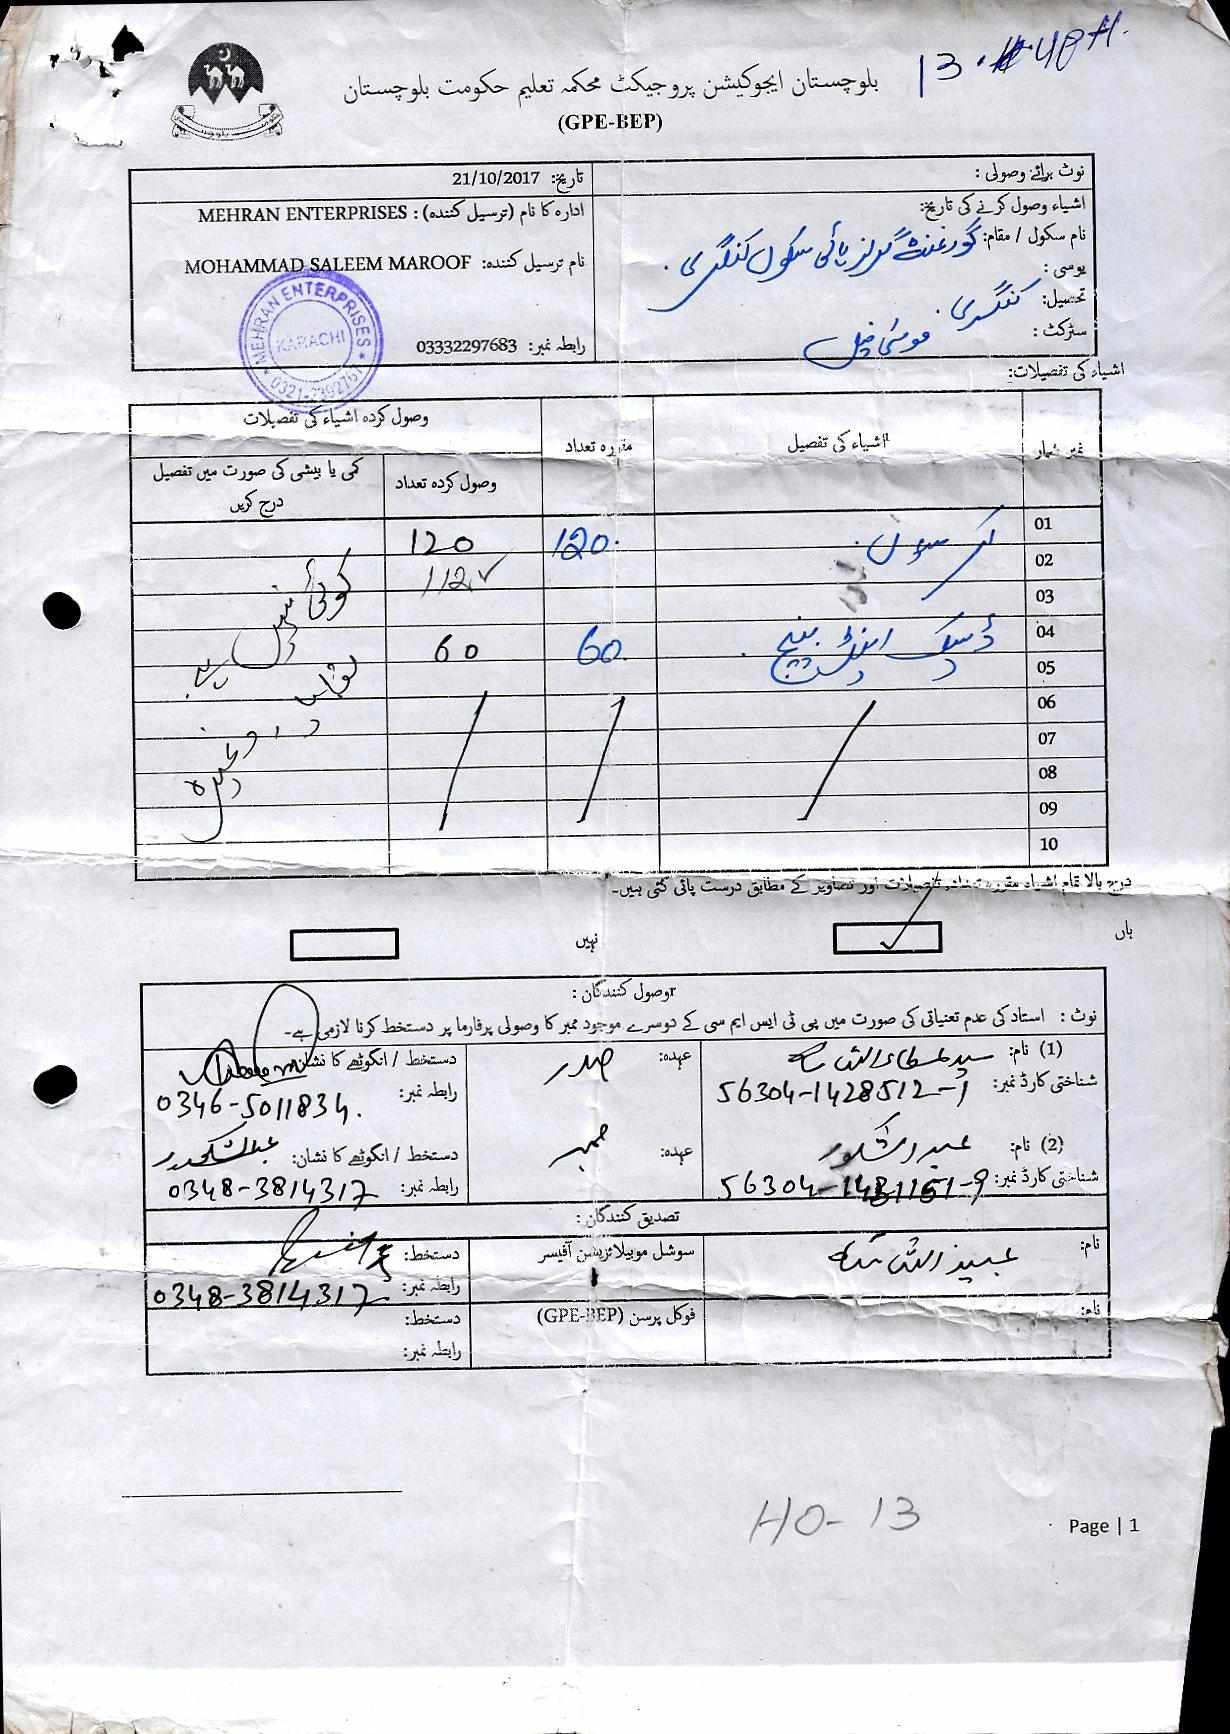 13.
بلوچستان ایجوکیشن پروجیکٹ محکمہ تعلیم حکومت بلوچستان
(GPE-BEP)
نوٹ برائے وصولی :
تاریخ: 21/10/2017
اشیاء وصول کرنے کی تاریخ:
ادارہ کا نام (ترسیل کنندہ) : MEHRAN ENTERPRISES
نام سکول / مقام: گورنمنٹ گرلز ہائی سکول کنگری
نام ترسیل کنندہ: MOHAMMAD SALEEM MAROOF
یوسی :
تحصیل: کنگری
سٹرکٹ : موسیٰ خیل
رابطہ نمبر: 03332297683
MEHRAN ENTERPRISES
KARACHI
اشیاء کی تفصیلات:
نمبر شمار
اشیاء کی تفصیل
مقررہ تعداد
وصول کردہ اشیاء کی تفصیلات
وصول کردہ تعداد
کمی یا بیشی کی صورت میں تفصیل درج کریں
01 کرسیاں 120 120
02 112
03
04 ڈیسک اینڈ بینچ 60 60
05
06
07
08
09
10
کوئی نہیں ہے
درج بالا تمام اشیاء مقررہ تعداد، تفصیلات اور تصاویر کے مطابق درست پائی گئی ہیں۔
ہاں ✓ نہیں
وصول کنندگان :
نوٹ : استاد کی عدم تعنیاتی کی صورت میں پی ٹی ایس ایم سی کے دوسرے موجود ممبر کا وصولی پرفارما پر دستخط کرنا لازمی ہے۔
(1) نام: سید عطاء اللہ شاہ
عہدہ: صدر
دستخط / انگوٹھے کا نشان:
شناختی کارڈ نمبر: 56304-1428512-1
رابطہ نمبر: 0346-5011834
(2) نام: عبدالشکور
عہدہ: ممبر
دستخط / انگوٹھے کا نشان: عبدالشکور
شناختی کارڈ نمبر: 56304-
رابطہ نمبر: 0348-3814317
تصدیق کنندگان :
نام:
سوشل موبیلائزیشن آفیسر
دستخط:
رابطہ نمبر: 0348-3814317
نام:
فوکل پرسن (GPE-BEP)
دستخط:
رابطہ نمبر:
HO-13
Page | 1